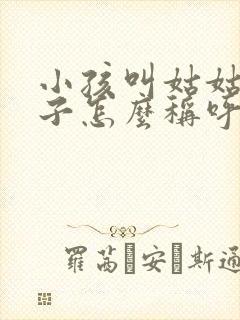 小孩叫姑姑
子怎麼稱呼
羅茜 安 斯通